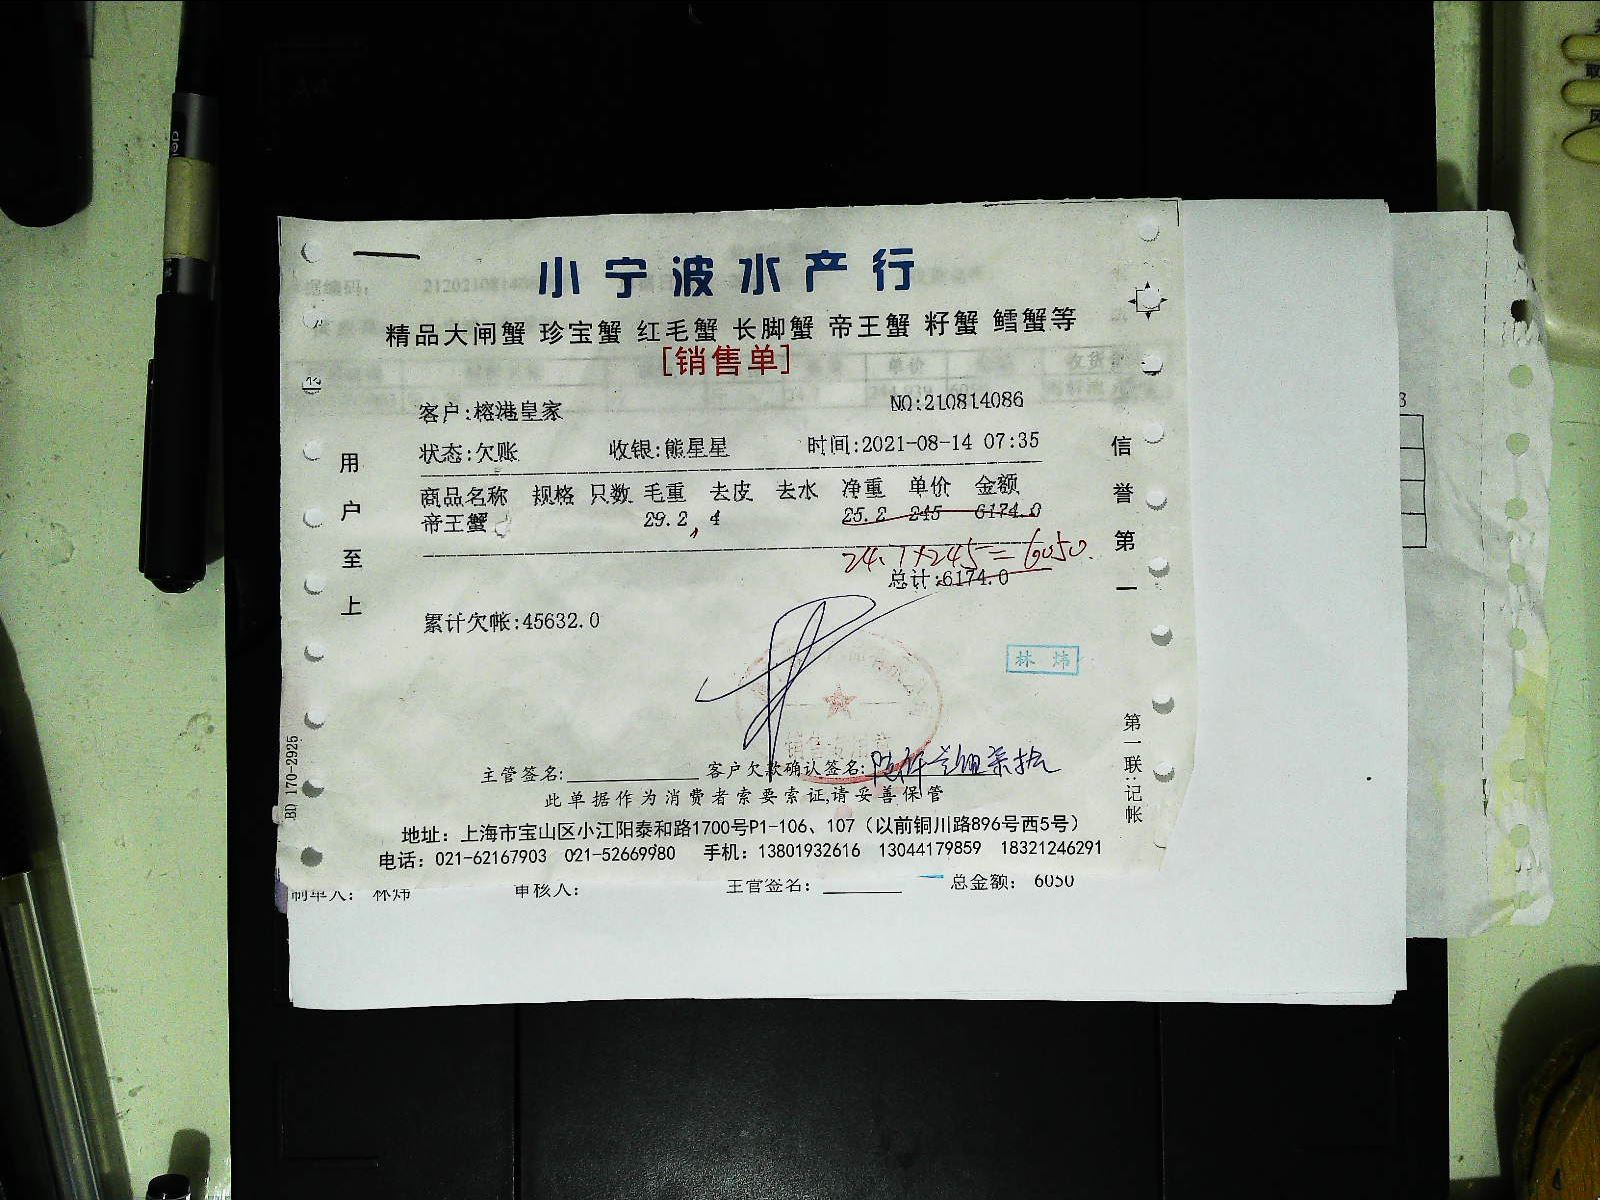 小宁波水产行
精品大闸蟹 珍宝蟹 红毛蟹 长脚蟹 帝王蟹 籽蟹 鳕蟹等
[销售单]
客户:榕港皇家 NO:210814086
状态:欠账 收银:熊星星 时间:2021-08-14 07:35
商品名称 规格 只数 毛重 去皮 去水 净重 单价 金额
帝王蟹 29.2 4 25.2 245 6174.0
24.1×245=6050.
总计:6174.0
累计欠帐:45632.0
用户至上
信誉第一
林炜
第一联:记帐
BD 170-2925
主管签名: 客户欠款确认签名:
此单据作为消费者索要索证,请妥善保管
地址：上海市宝山区小江阳泰和路1700号P1-106、107（以前铜川路896号西5号）
电话：021-62167903 021-52669980 手机：13801932616 13044179859 18321246291
制单人： 林炜 审核人： 主管签名： 总金额： 6050